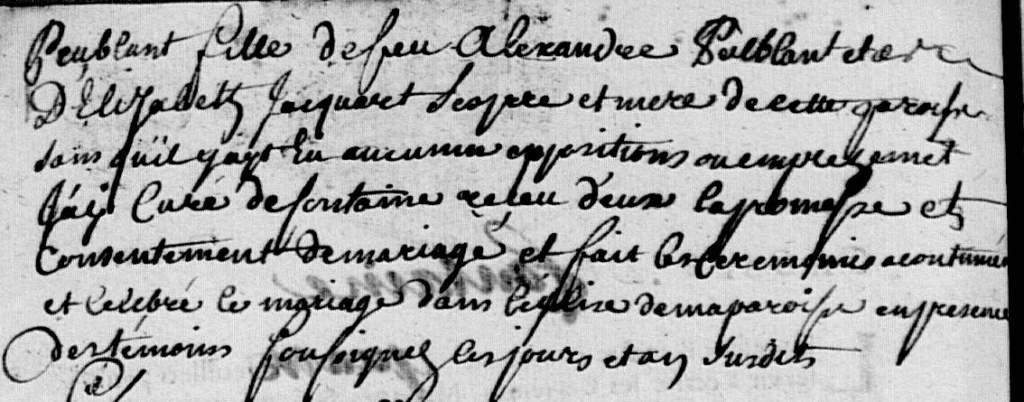 Peublant fille de feu Alexandre Peublant et de
D'Elizabeth Jacquaret ses pere et mere de cette paroisse
sans quil y ayt Eu aucunne oppositions ou empreschemet
J'ay Curé defontaine receu d'eux la promesse et
Consentement demariage et fait les ceremonies acoutumée
et Celebré le mariage dans leglise de maparoisse en presence
des temoins Soussignez les jours et an Susdits